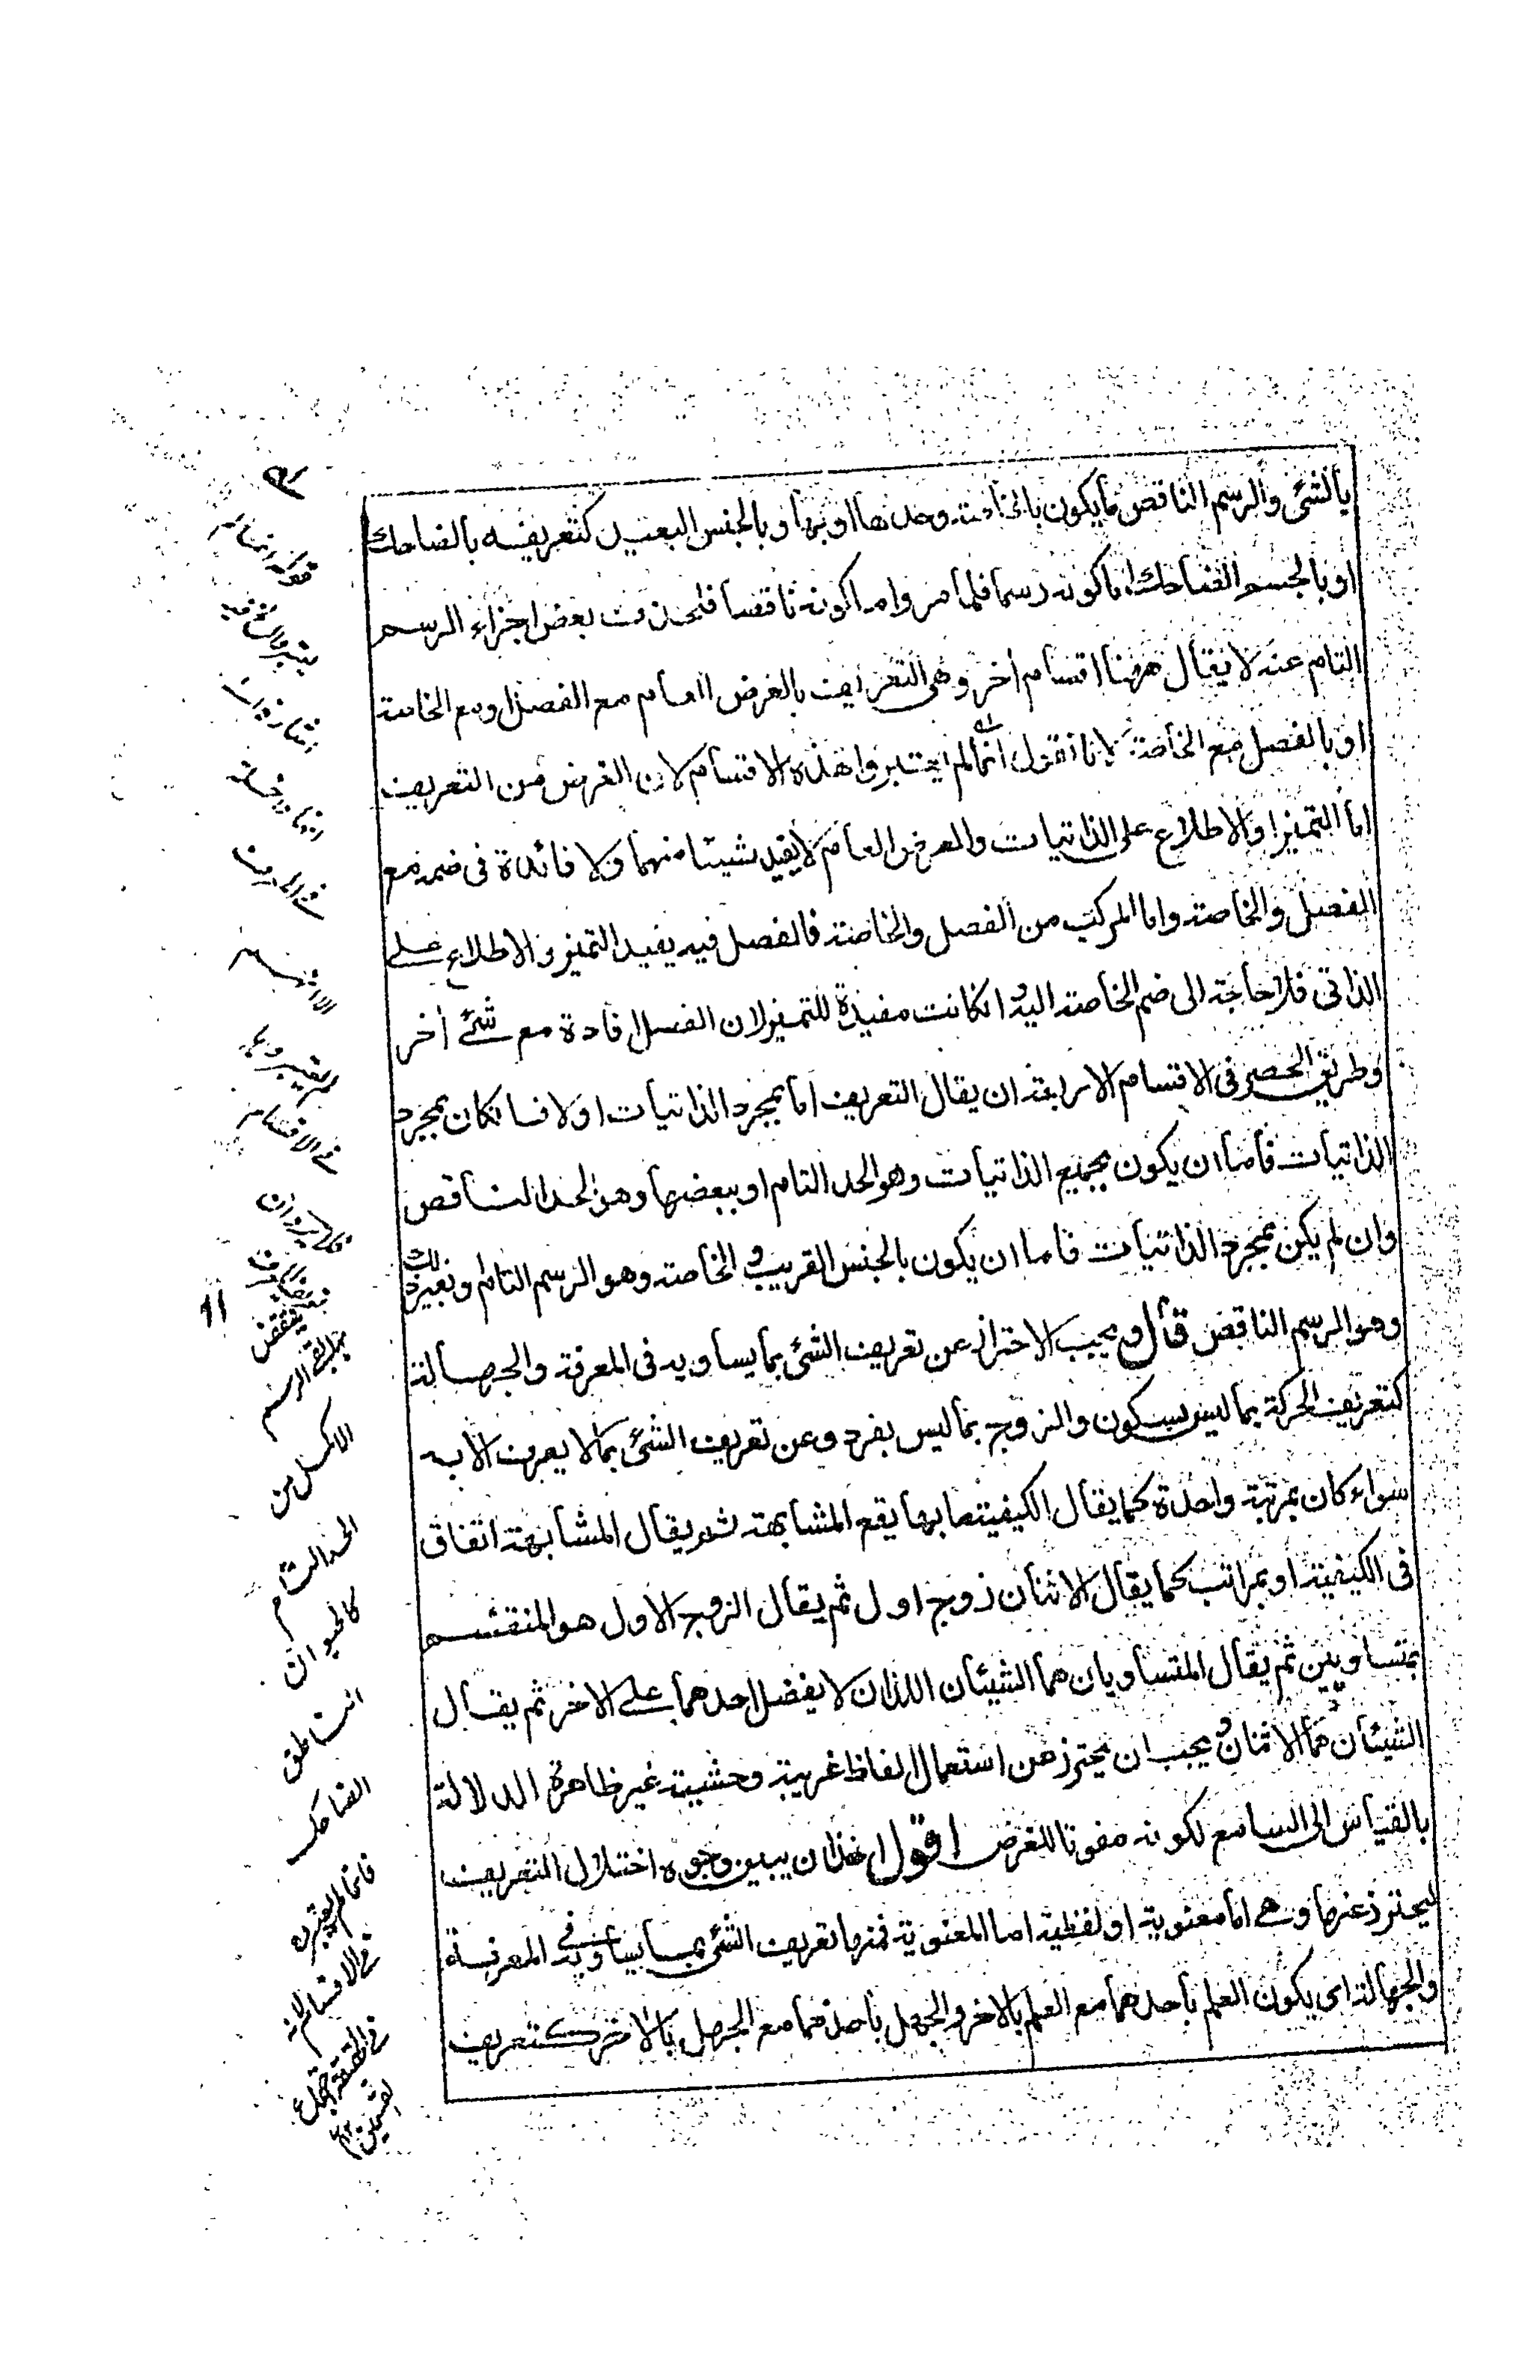 بالشئ والرسم الناقص ما يكون بالخاصة وحدها او بها وبالجنس البعيد كتعريفه بالضاحك
او بالجسم الضاحك اما كونه رسما فلما مر واما كونه ناقصا فلحذف بعض اجزاء الرسم
التام عنه لا يقال ههنا اقسام أخر وهى التعريف بالعرض العام مع الفصل او مع الخاصة
او بالفصل مع الخاصة لانا نقول انما لم يعتبروا هذه الاقسام لان الغرض من التعريف
اما التميز او الاطلاع على الذاتيات والعرض العام لا يفيد شيئا منهما ولا فائدة فى ضمه مع
الفصل والخاصة واما المركب من الفصل والخاصة فالفصل فيه يفيد التميز والاطلاع على
الذاتى فلا حاجة الى ضم الخاصة اليه وانكانت مفيدة للتميز لان الفصل افاده مع شئ أخر
وطريق الحصر فى الاقسام الاربعة ان يقال التعريف اما بمجرد الذاتيات او لا فانكان بمجرد
الذاتيات فاما ان يكون بجميع الذاتيات وهو الحد التام او ببعضها وهو الحد الناقص
وان لم يكن بمجرد الذاتيات فاما ان يكون بالجنس القريب والخاصة وهو الرسم التام وبغير ذلك
وهو الرسم الناقص قال ويجب الاحتراز عن تعريف الشئ بما يساويه فى المعرفة والجهالة
كتعريف الحركة بما ليس بسكون والزوج بما ليس بفرد وعن تعريف الشئ بما لا يعرف الا به
سواء كان بمرتبة واحدة كما يقال الكيفية ما بها يقع المشابهة ثم يقال المشابهة اتفاق
فى الكيفية او بمراتب كما يقال الاثنان زوج اول ثم يقال الزوج الاول هو المنقسم
بمتساويين ثم يقال المتساويان هما الشيئان اللذان لا يفضل احدهما على الاخر ثم يقال
الشيئان هما الاثنان ويجب ان يحترز عن استعمال الفاظ غريبة وحشية غير ظاهرة الدلالة
بالقياس الى السامع لكونه مفوتا للغرض اقول اخذ ان يبين وجوه اختلال التعريف
ليحترز عنها وهى اما معنوية او لفظية اما المعنوية فمنها تعريف الشئ بما يساويه فى المعرفة
والجهالة اى يكون العلم باحدهما مع العلم بالاخر والجهل باحدهما مع الجهل بالاخر كتعريف
الرسم
الاكمل من
الحد التام
كالحيوان
الناطق
الضاحك